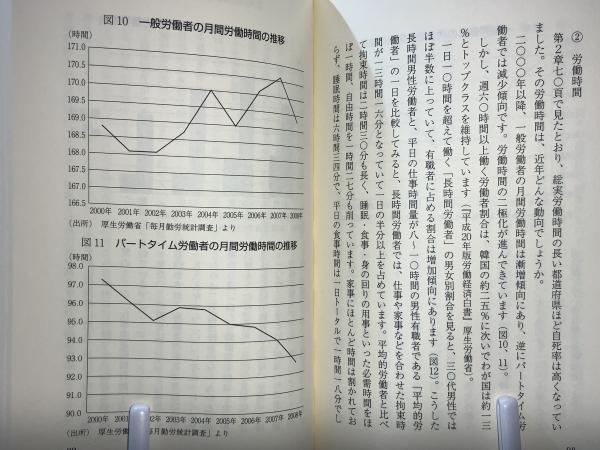 ② 労働時間
第2章七〇頁で見たとおり、総実労働時間の長い都道府県ほど自死率は高くなってい
ました。その労働時間は、近年どんな動向でしょうか。
二〇〇〇年以降、一般労働者の月間労働時間は漸増傾向にあり、逆にパートタイム労
働者では減少傾向です。労働時間の二極化が進んできています（図10、11）。
しかし、週六〇時間以上働く労働者割合は、韓国の約二五％に次いでわが国は約一三
％とトップクラスを維持しています（『平成20年版労働経済白書』厚生労働省）。
一日一〇時間を超えて働く「長時間労働者」の男女別割合を見ると、三〇代男性では
ほぼ半数に上っていて、有職者に占める割合は増加傾向にあります（図12）。こうした
長時間男性労働者と、平日の仕事時間量が八〜一〇時間の男性有職者である「平均的労
働者」の一日を比較してみると、長時間労働者では、仕事や家事などを合わせた拘束時
間が一三時間一六分となっていて一日の半分以上を占めています。平均的労働者と比べ
て拘束時間は二時間三〇分も長く、睡眠・食事・身の回りの用事といった必需時間をほ
ぼ一時間、自由時間を一時間二七分も削っています。家事にほとんど時間は割かれてお
らず、睡眠時間は六時間三四分で、平日の食事時間は一日トータルで一時間一八分でし
図10 一般労働者の月間労働時間の推移
(時間)
171.0
170.5
170.0
169.5
169.0
168.5
168.0
167.5
167.0
166.5
2000年 2001年 2002年 2003年 2004年 2005年 2006年 2007年 2008年
（出所） 厚生労働省「毎月勤労統計調査」より
図11 パートタイム労働者の月間労働時間の推移
(時間)
98.0
97.0
96.0
95.0
94.0
93.0
92.0
91.0
90.0
2000年 2001年 2002年 2003年 2004年 2005年 2006年 2007年 2008年
（出所） 厚生労働省 毎月勤労統計調査」より